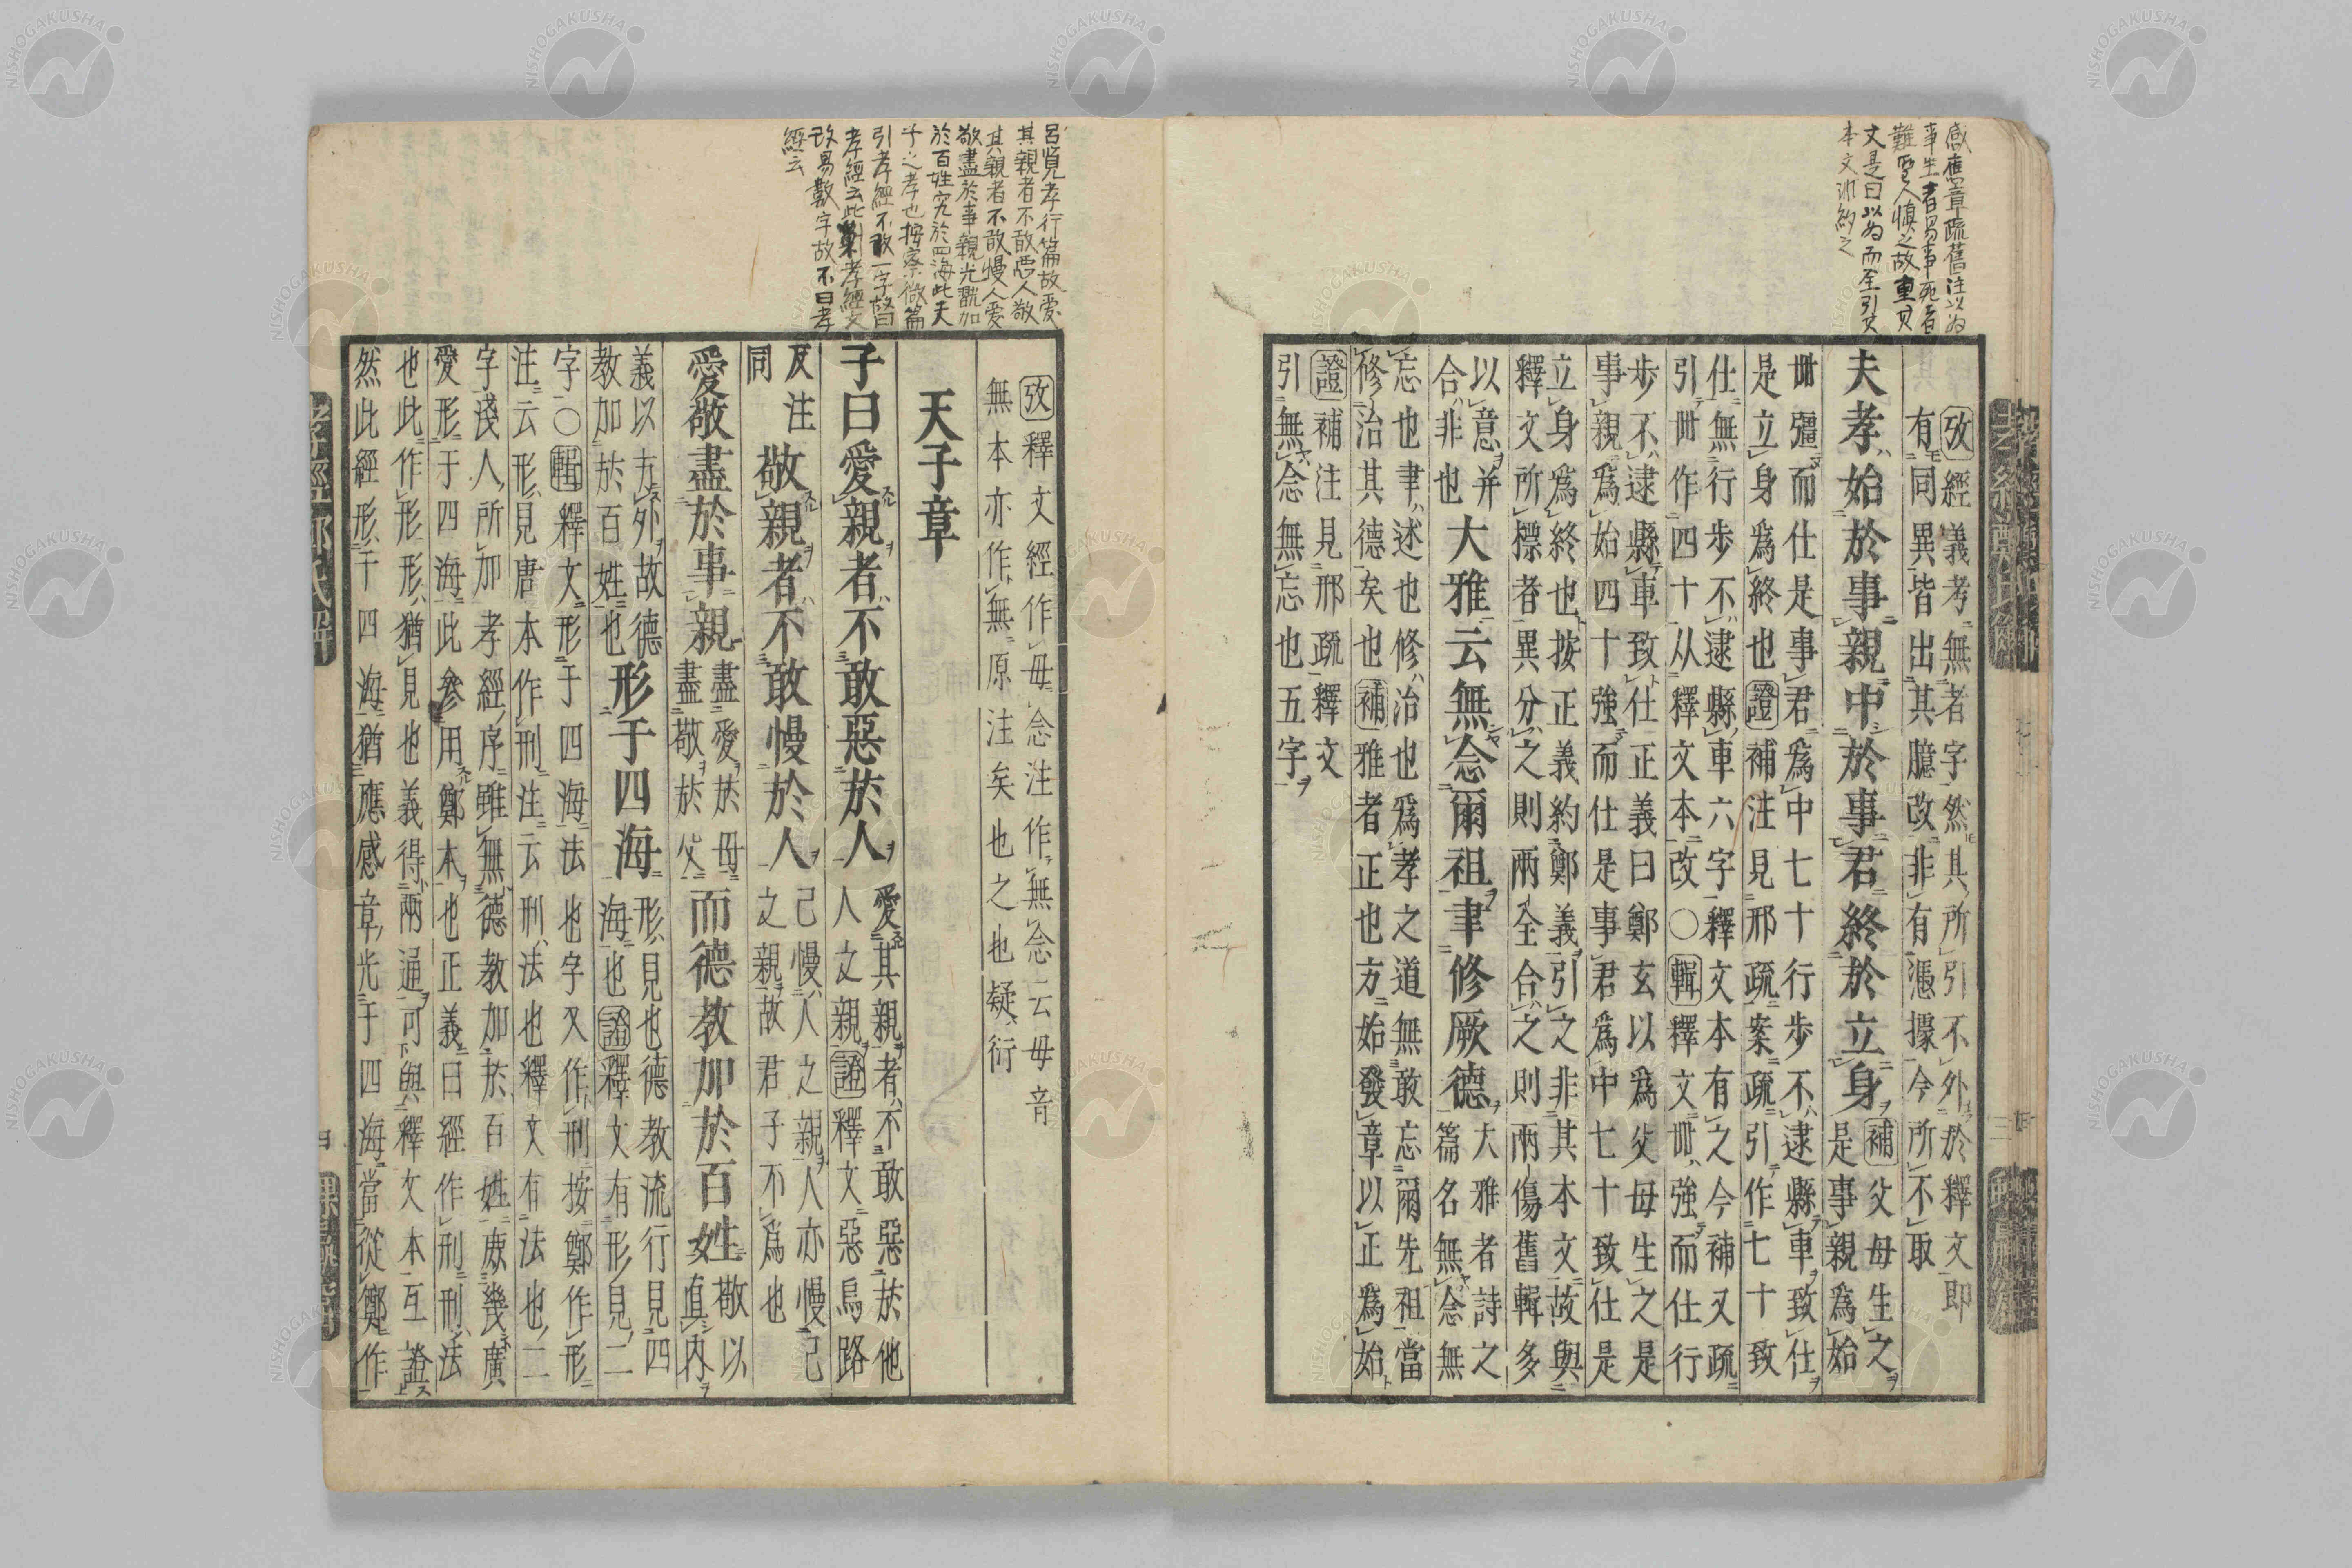 感應章疏舊注以爲
事生者易事死者
難聖人愼之故重其
文是曰以爲而至引其
本文非約之
攷經義考無者字然其所引不外於釋文卽
有同異皆出其臆改非有憑據今所不取
夫孝始於事親中於事君終於立身補父母生之
是事親爲始
卌彊而仕是事君爲中七十行步不逮縣車致仕
是立身爲終也證補注見邢疏案疏引作七十致
仕無行步不逮縣車六字釋文本有之今補又疏
引卌作四十从釋文本改○輯釋文卌強而仕行
步不逮縣車致仕正義曰鄭玄以爲父母生之是
事親爲始四十強而仕是事君爲中七十致仕是
立身爲終也按正義約鄭義引之非其本文故與
釋文所標者異分之則兩全合之則兩傷舊輯多
以意并
合非也
大雅云無念爾祖聿修厥德
大雅者詩之
篇名無念無
忘也聿述也修治也爲孝之道無敢忘爾先祖當
修治其德矣也補雅者正也方始發章以正爲始
證補注見邢疏釋文
引無念無忘也五字
呂覽孝行篇故愛
其親者不敢惡人敬
其親者不敢慢人愛
敬盡於事親光燿加
於百姓究於四海此天
子之孝也按察微篇
引孝經不敢一字替曰
孝經云此孝經文
改易數字故不曰孝
經云
攷釋文經作毋念注作無念云毋音
無本亦作無原注矣也之也疑衍
天子章
子曰愛親者不敢惡於人
愛其親者不敢惡於他
人之親證釋文惡烏路
反注
同
敬親者不敢慢於人
己慢人之親人亦慢己
之親故君子不爲也
愛敬盡於事親
盡愛於母
盡敬於父
而德教加於百姓
敬以
直內
義以方外故德
教加於百姓也
形于四海
形見也德教流行見四
海也證釋文有形見二
字○輯釋文形于四海法也字又作刑按鄭作形
注云形見唐本作刑注云刑法也釋文有法也二
字淺人所加孝經序雖無德教加於百姓庶幾廣
愛形于四海此參用鄭本也正義曰經作刑刑法
也此作形形猶見也義得兩通可與釋文本互證
然此經形于四海猶應感章光于四海當從鄭作
孝經鄭氏解
四